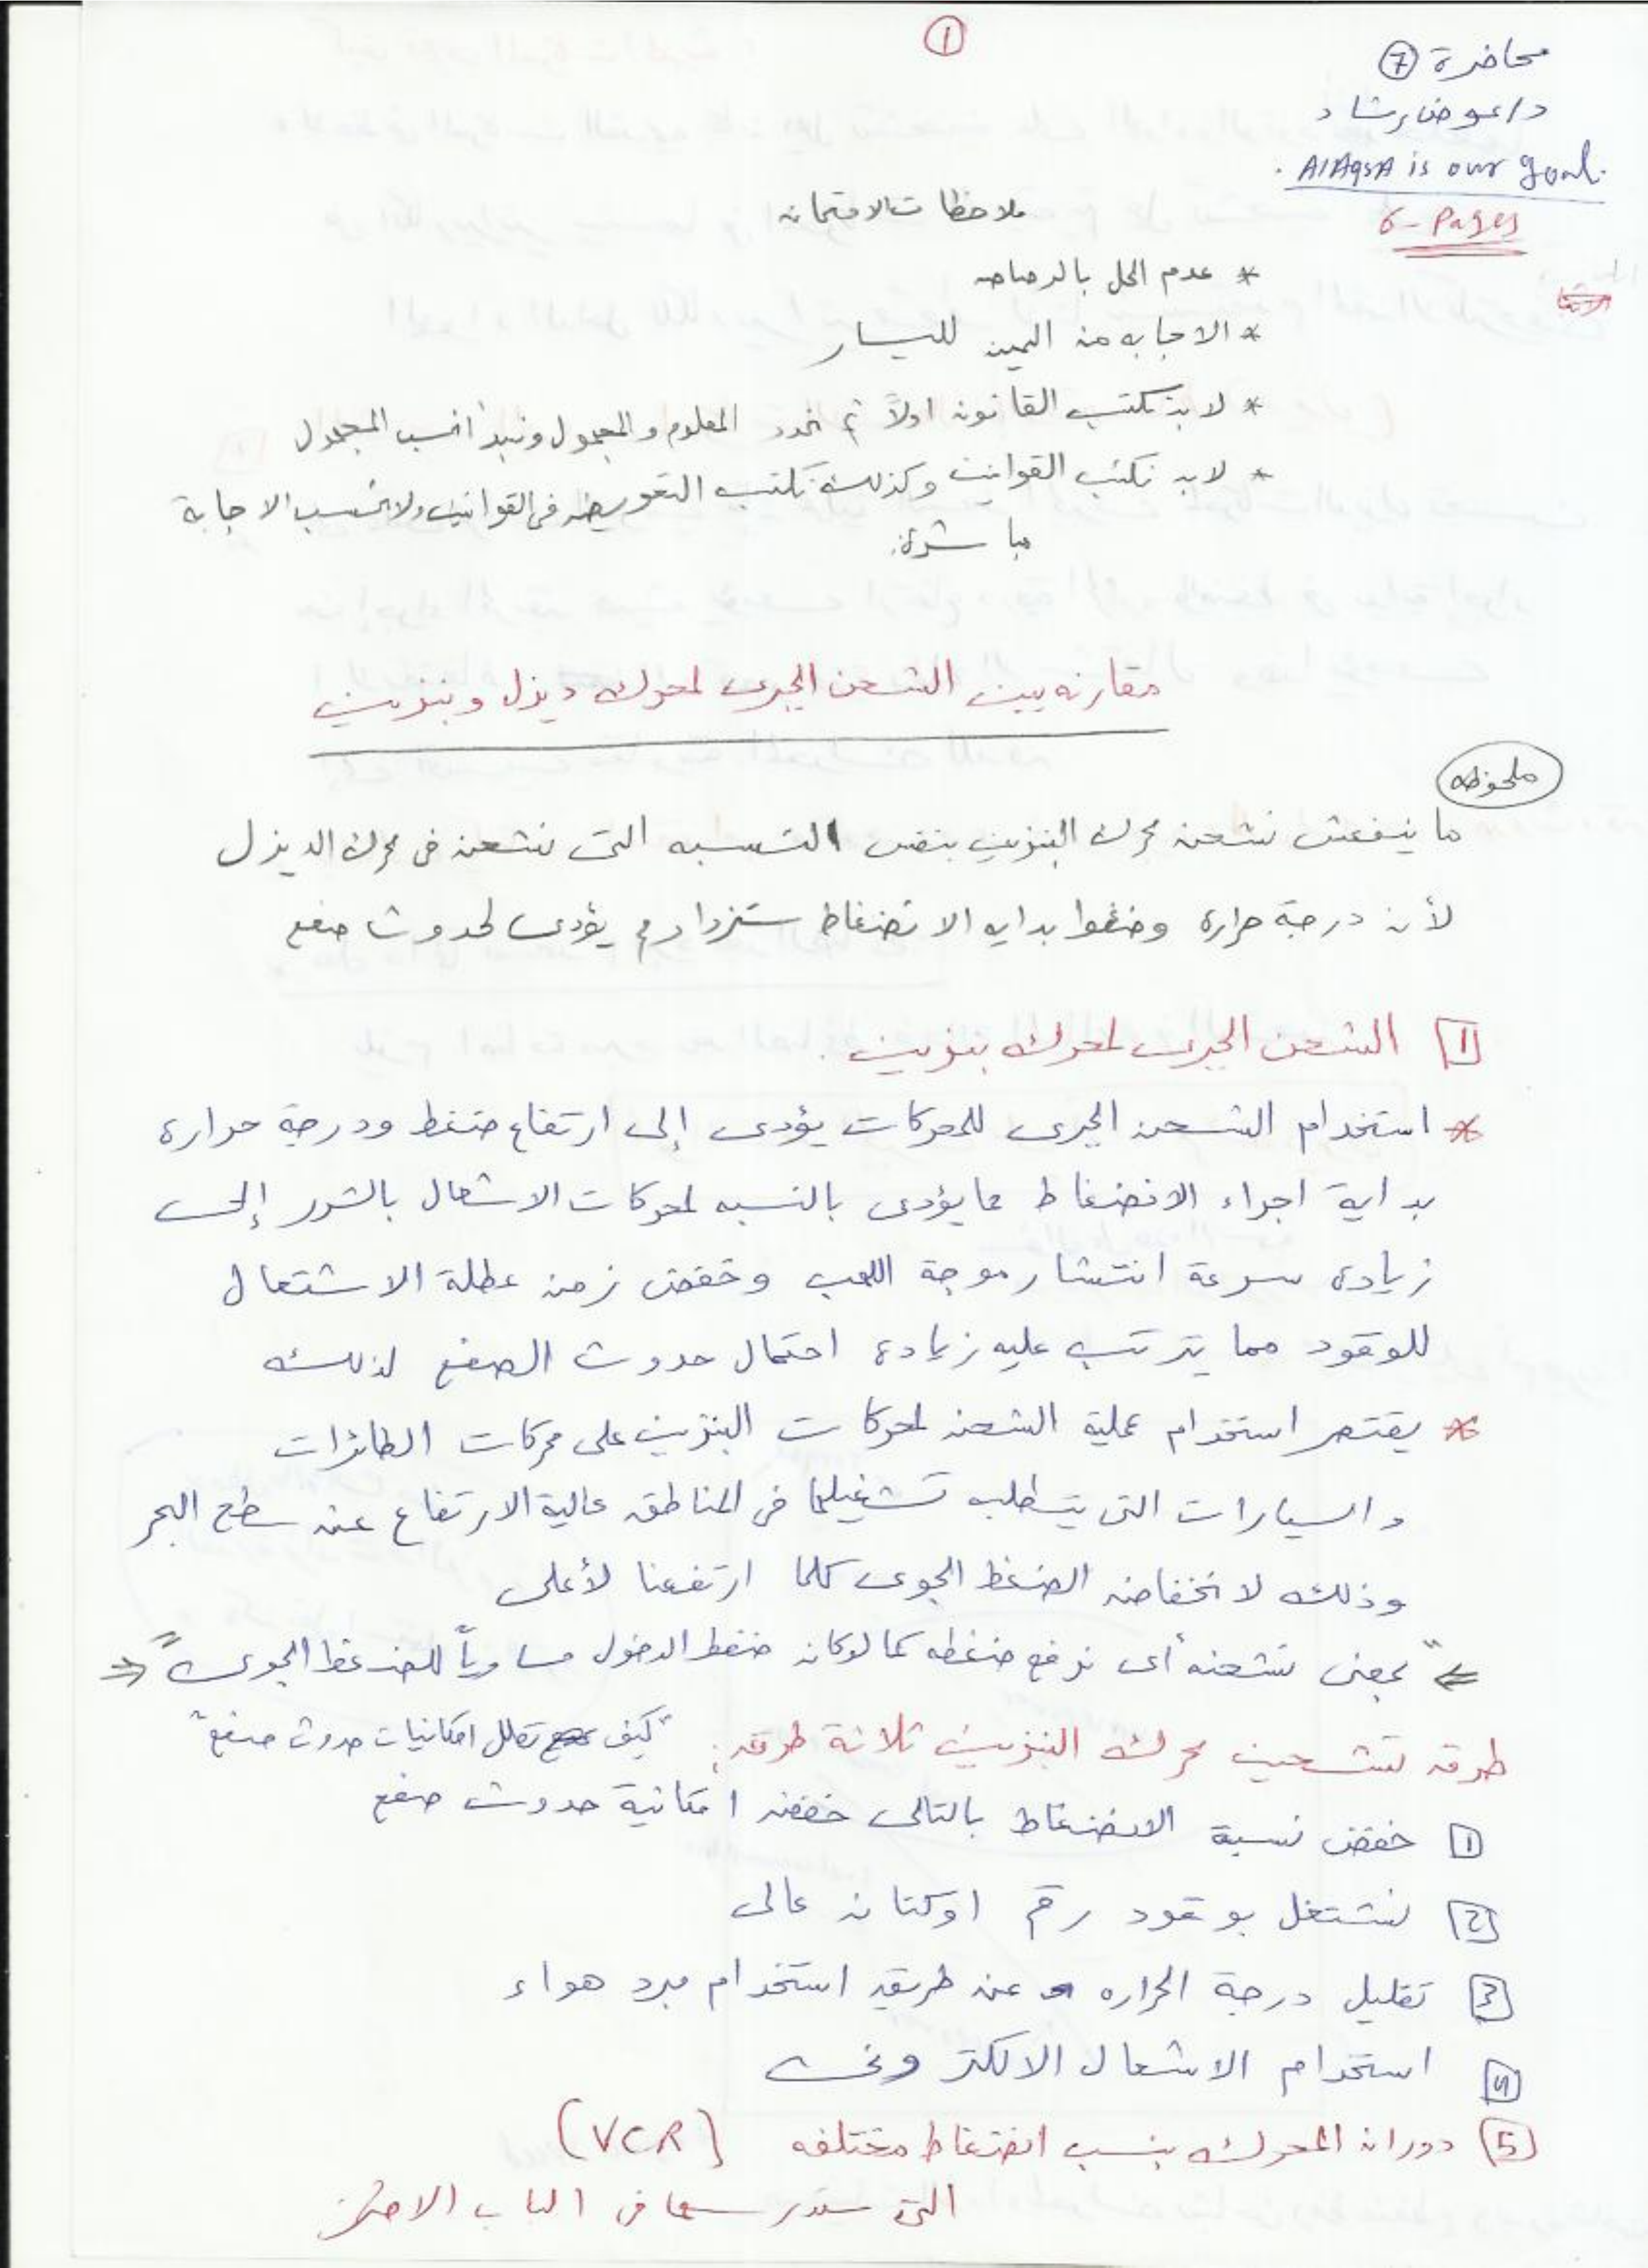 ①
محاضرة ⑦
د/عوض رشاد
AlAqsA is our goal.
6- Pages
ملاحظات الامتحان
* عدم الحل بالرصاص
* الاجابه من اليمين لليسار
* لابد نكتب القانون اولاً ثم نحدد المعلوم والمجهول ونبدأ نحسب المجهول
* لابد نكتب القوانين وكذلك نكتب التعويض فى القوانين ولا نحسب الاجابة
مباشرة.
مقارنه بين الشحن الجبرى لمحرك ديزل وبنزين
ملحوظه
ما ينفعش نشحن محرك البنزين بنفس النسبه التى نشحن فى محرك الديزل
لأن درجة حراره وضغط بدايه الانضغاط ستزداد ثم يؤدى لحدوث صفع
1 الشحن الجبرى لمحرك بنزين.
* استخدام الشحن الجبرى للمحركات يؤدى إلى ارتفاع ضغط ودرجة حراره
بداية اجراء الانضغاط مما يؤدى بالنسبه لمحركات الاشعال بالشرر إلى
زيادة سرعة انتشار موجة اللهب وخفض زمن عطلة الاشتعال
للوقود مما يترتب عليه زيادة احتمال حدوث الصفع لذلك
* يقتصر استخدام عملية الشحن لمحركات البنزين على محركات الطائرات
والسيارات التى يتطلب تشغيلها فى المناطق عالية الارتفاع عن سطح البحر
وذلك لانخفاض الضغط الجوى كلما ارتفعنا لأعلى
"بمعنى نشحنه أى نرفع ضغطه كما لو كان ضغط الدخول مساوياً للضغط الجوى"
طرق تشحين محرك البنزين ثلاثة طرق: "كيف نقلل امكانيات حدوث صفع"
1 خفض نسبة الانضغاط بالتالى خفض امكانية حدوث صفع
2 نشتغل بوقود رقم اوكتان عالى
3 تقليل درجة الحراره عن طريق استخدام مبرد هواء
4 استخدام الاشعال الالكترونى
5 دوران المحرك بنسب انضغاط مختلفه (VCR)
التى سندرسها فى الباب الاخير